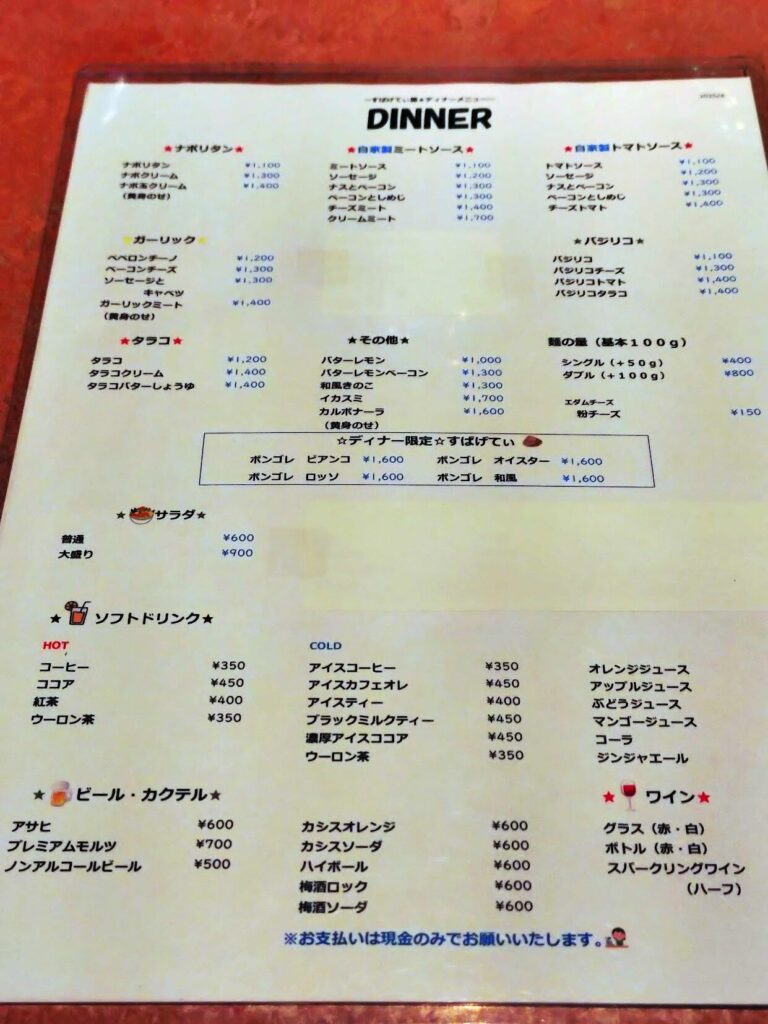 ーすぱげてぃ屋★ディナーメニューー
DINNER
★ナポリタン★
ナポリタン ¥1,100
ナポクリーム ¥1,300
ナポ玉クリーム ¥1,400
(黄身のせ)
★自家製ミートソース★
ミートソース ¥1,100
ソーセージ ¥1,200
ナスとベーコン ¥1,300
ベーコンとしめじ ¥1,300
チーズミート ¥1,400
クリームミート ¥1,700
★自家製トマトソース★
トマトソース ¥1,100
ソーセージ ¥1,200
ナスとベーコン ¥1,300
ベーコンとしめじ ¥1,300
チーズトマト ¥1,400
★ガーリック★
ペペロンチーノ ¥1,200
ベーコンチーズ ¥1,300
ソーセージと ¥1,300
キャベツ
ガーリックミート ¥1,400
(黄身のせ)
★バジリコ★
バジリコ ¥1,100
バジリコチーズ ¥1,300
バジリコトマト ¥1,400
バジリコタラコ ¥1,400
★タラコ★
タラコ ¥1,200
タラコクリーム ¥1,400
タラコバターしょうゆ ¥1,400
★その他★
バターレモン ¥1,000
バターレモンベーコン ¥1,300
和風きのこ ¥1,300
イカスミ ¥1,700
カルボナーラ ¥1,600
(黄身のせ)
麺の量(基本100g)
シングル(+50g) ¥400
ダブル(+100g) ¥800
エダムチーズ
粉チーズ ¥150
☆ディナー限定☆すぱげてぃ
ボンゴレ ビアンコ ¥1,600 ボンゴレ オイスター ¥1,600
ボンゴレ ロッソ ¥1,600 ボンゴレ 和風 ¥1,600
★サラダ★
普通 ¥600
大盛り ¥900
★ソフトドリンク★
HOT
コーヒー ¥350
ココア ¥450
紅茶 ¥400
ウーロン茶 ¥350
COLD
アイスコーヒー ¥350
アイスカフェオレ ¥450
アイスティー ¥400
ブラックミルクティー ¥450
濃厚アイスココア ¥450
ウーロン茶 ¥350
オレンジジュース
アップルジュース
ぶどうジュース
マンゴージュース
コーラ
ジンジャエール
★ビール・カクテル★
アサヒ ¥600
プレミアムモルツ ¥700
ノンアルコールビール ¥500
カシスオレンジ ¥600
カシスソーダ ¥600
ハイボール ¥600
梅酒ロック ¥600
梅酒ソーダ ¥600
★ワイン★
グラス(赤・白)
ボトル(赤・白)
スパークリングワイン
(ハーフ)
※お支払いは現金のみでお願いいたします。